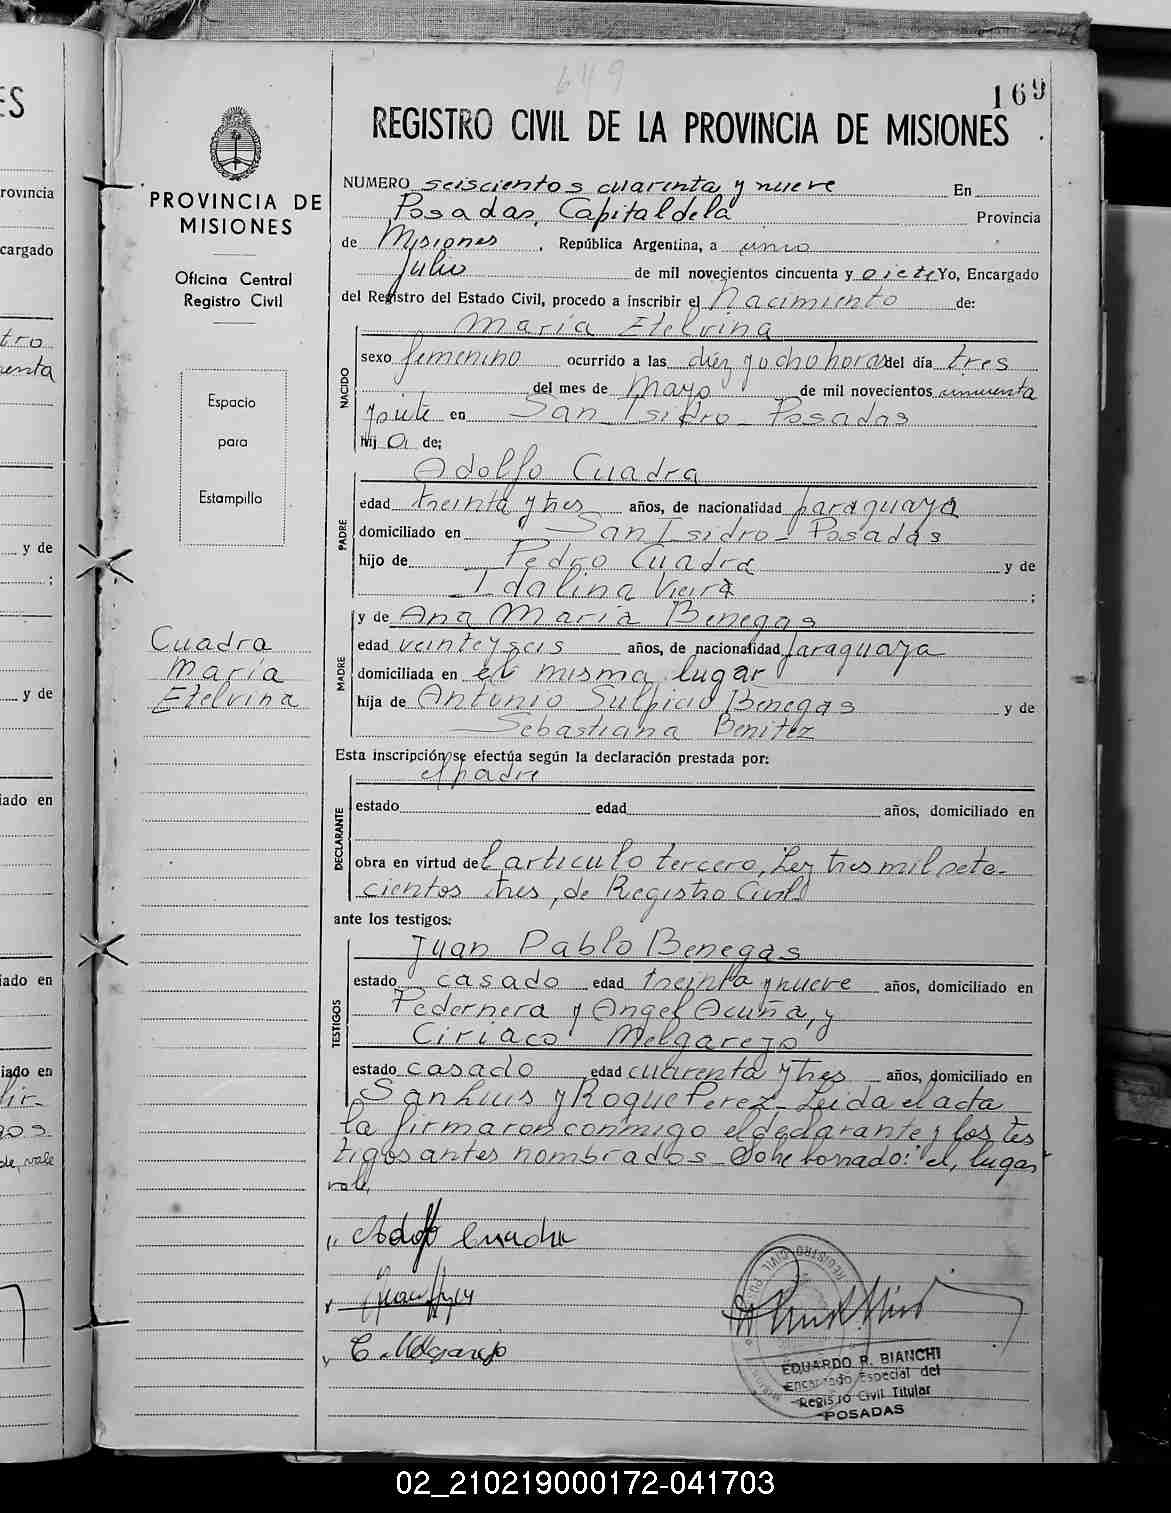 649
169
REGISTRO CIVIL DE LA PROVINCIA DE MISIONES
PROVINCIA DE
MISIONES
Oficina Central
Registro Civil
Espacio
para
Estampilla
Cuadra
María
Etelvina
NUMERO seiscientos cuarenta y nueve En
Posadas, Capital de la Provincia
de Misiones, República Argentina, a uno
Julio de mil novecientos cincuenta y siete Yo, Encargado
del Registro del Estado Civil, procedo a inscribir el Nacimiento de:
NACIDO
María Etelvina
sexo femenino ocurrido a las diez y ocho horas del día tres
del mes de Mayo de mil novecientos cincuenta
y siete en San Isidro - Posadas
hija de:
PADRE
Adolfo Cuadra
edad treinta y tres años, de nacionalidad paraguaya
domiciliado en San Isidro - Posadas
hijo de Pedro Cuadra y de
Idalina Vieira ;
MADRE
y de Ana María Benegas
edad veinte y seis años, de nacionalidad paraguaya
domiciliada en el misma lugar
hija de Antonio Sulpicio Benegas y de
Sebastiana Benitez
Esta inscripción se efectúa según la declaración prestada por:
DECLARANTE
el padre
estado edad años, domiciliado en
obra en virtud del artículo tercero, Ley tres mil seto-
cientos tres, de Registro Civil
ante los testigos:
TESTIGOS
Juan Pablo Benegas
estado casado edad treinta y nueve años, domiciliado en
Pedernera y Angel Acuña, y
Ciriaco Melgarejo
estado casado edad cuarenta y tres años, domiciliado en
San Luis y Roque Perez - Leida el acta
la firmaron conmigo el declarante y los tes
tigos antes nombrados - Sobre borrado: "el, lugar"
vale
Adolfo Cuadra
C. Melgarejo
EDUARDO R. BIANCHI
Encargado Especial del
Registro Civil Titular
POSADAS
02_210219000172-041703